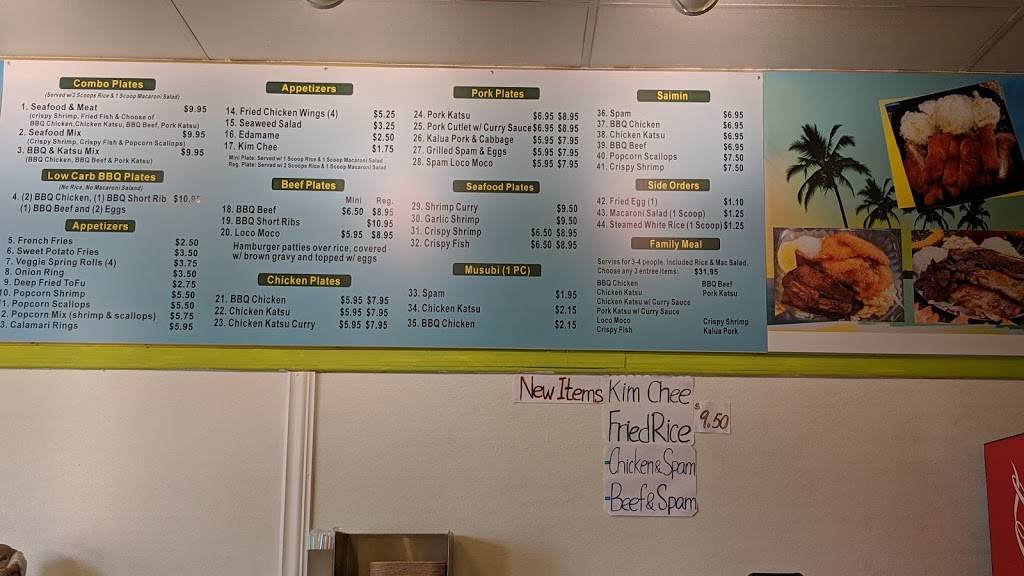 Combo Plates
(Served w/2 Scoops Rice & 1 Scoop Macaroni Salad)
1. Seafood & Meat $9.95
(crispy Shrimp, Fried Fish & Choose of
BBQ Chicken,Chicken Katsu, BBQ Beef, Pork Katsu)
2. Seafood Mix $9.95
(Crispy Shrimp, Crispy Fish & Popcorn Scallops)
3. BBQ & Katsu Mix $9.95
(BBQ Chicken, BBQ Beef & Pork Katsu)
Low Carb BBQ Plates
(No Rice, No Macaroni Saland)
4. (2) BBQ Chicken, (1) BBQ Short Rib $10.95
(1) BBQ Beef and (2) Eggs
Appetizers
5. French Fries $2.50
6. Sweet Potato Fries $3.50
7. Veggie Spring Rolls (4) $3.75
8. Onion Ring $3.50
9. Deep Fried ToFu $2.75
10. Popcorn Shrimp $5.50
1. Popcorn Scallops $5.50
2. Popcorn Mix (shrimp & scallops) $5.75
3. Calamari Rings $5.95
Appetizers
14. Fried Chicken Wings (4) $5.25
15. Seaweed Salad $3.25
16. Edamame $2.50
17. Kim Chee $1.75
Mini Plate: Served w/ 1 Scoop Rice & 1 Scoop Macaroni Salad
Reg. Plate: Served w/ 2 Scoops Rice & 1 Scoop Macaroni Salad
Beef Plates
Mini Reg.
18. BBQ Beef $6.50 $8.95
19. BBQ Short Ribs $10.95
20. Loco Moco $5.95 $8.95
Hamburger patties over rice, covered
w/ brown gravy and topped w/ eggs
Chicken Plates
21. BBQ Chicken $5.95 $7.95
22. Chicken Katsu $5.95 $7.95
23. Chicken Katsu Curry $5.95 $7.95
Pork Plates
24. Pork Katsu $6.95 $8.95
25. Pork Cutlet w/ Curry Sauce $6.95 $8.95
26. Kalua Pork & Cabbage $5.95 $7.95
27. Grilled Spam & Eggs $5.95 $7.95
28. Spam Loco Moco $5.95 $7.95
Seafood Plates
29. Shrimp Curry $9.50
30. Garlic Shrimp $9.50
31. Crispy Shrimp $6.50 $8.95
32. Crispy Fish $6.50 $8.95
Musubi (1 PC)
33. Spam $1.95
34. Chicken Katsu $2.15
35. BBQ Chicken $2.15
Saimin
36. Spam $6.95
37. BBQ Chicken $6.95
38. Chicken Katsu $6.95
39. BBQ Beef $6.95
40. Popcorn Scallops $7.50
41. Crispy Shrimp $7.50
Side Orders
42. Fried Egg (1) $1.10
43. Macaroni Salad (1 Scoop) $1.25
44. Steamed White Rice (1 Scoop) $1.25
Family Meal
Servies for 3-4 people. Included Rice & Mac Salad.
Choose any 3 entree items: $31.95
BBQ Chicken BBQ Beef
Chicken Katsu Pork Katsu
Chicken Katsu w/ Curry Sauce
Pork Katsu w/ Curry Sauce
Loco Moco Crispy Shrimp
Crispy Fish Kalua Pork
New Items Kim Chee
Fried Rice $9.50
-Chicken & Spam
-Beef & Spam